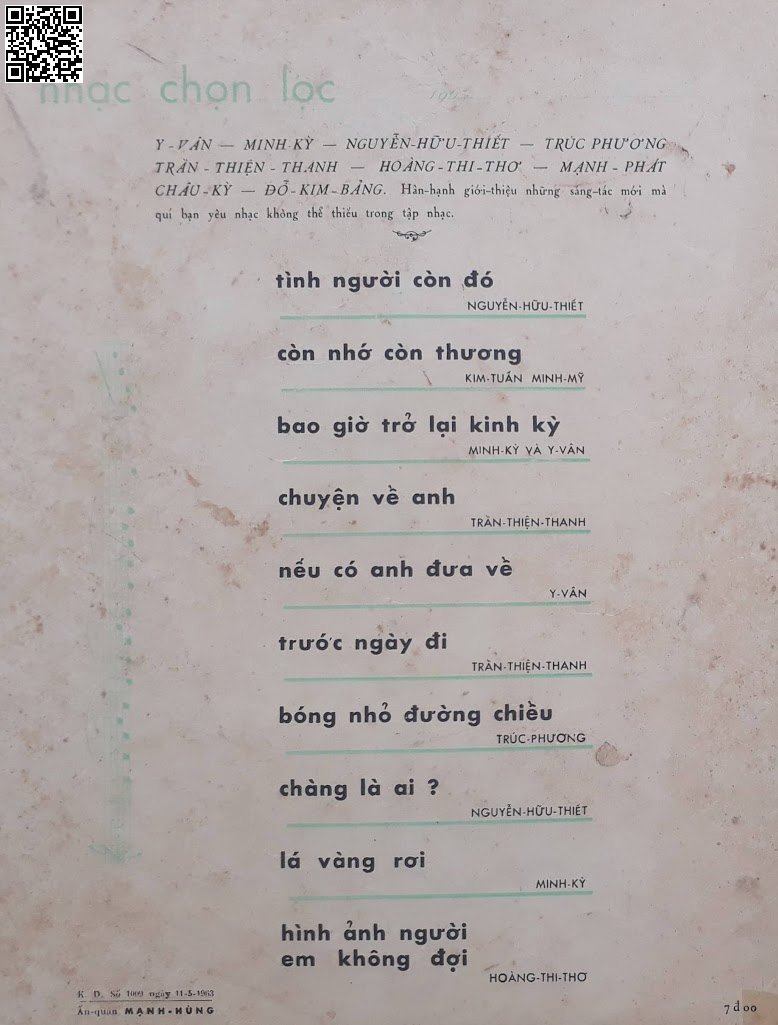 nhạc chọn lọc 1963
Y-VÂN — MINH-KỲ — NGUYỄN-HỮU-THIẾT — TRÚC PHƯƠNG
TRẦN - THIỆN - THANH — HOÀNG-THI-THƠ — MẠNH - PHÁT
CHÂU-KỲ — ĐỖ-KIM-BẢNG. Hân-hạnh giới-thiệu những sáng-tác mới mà
quí bạn yêu nhạc không thể thiếu trong tập nhạc.
tình người còn đó
NGUYỄN-HỮU-THIẾT
còn nhớ còn thương
KIM-TUẤN MINH-MỸ
bao giờ trở lại kinh kỳ
MINH-KỲ VÀ Y-VÂN
chuyện về anh
TRẦN-THIỆN-THANH
nếu có anh đưa về
Y-VÂN
trước ngày đi
TRẦN-THIỆN-THANH
bóng nhỏ đường chiều
TRÚC-PHƯƠNG
chàng là ai ?
NGUYỄN-HỮU-THIẾT
lá vàng rơi
MINH-KỲ
hình ảnh người
em không đợi
HOÀNG-THI-THƠ
K. D. Số 1009 ngày 11-5-1963
Ấn-quán MẠNH-HÙNG
7đ00